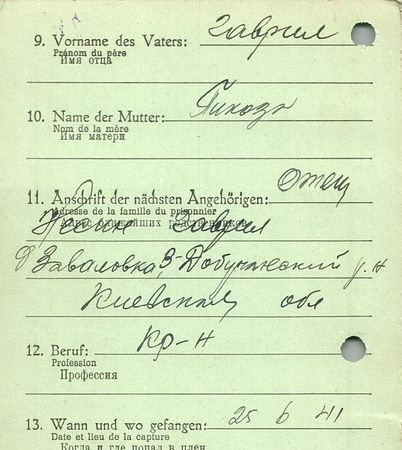 9. Vorname des Vaters: Гаврил
Prénom du père
Имя отца
10. Name der Mutter:
Nom de la mère
Имя матери
11. Anschrift der nächsten Angehörigen: Отец
Adresse de la famille du prisonnier
Адрес ближайших родственников
Гаврил
д Заваловка,
Киевская обл
12. Beruf: кр-н
Profession
Профессия
13. Wann und wo gefangen: 25 6 41
Date et lieu de la capture
Когда и где попал в плен